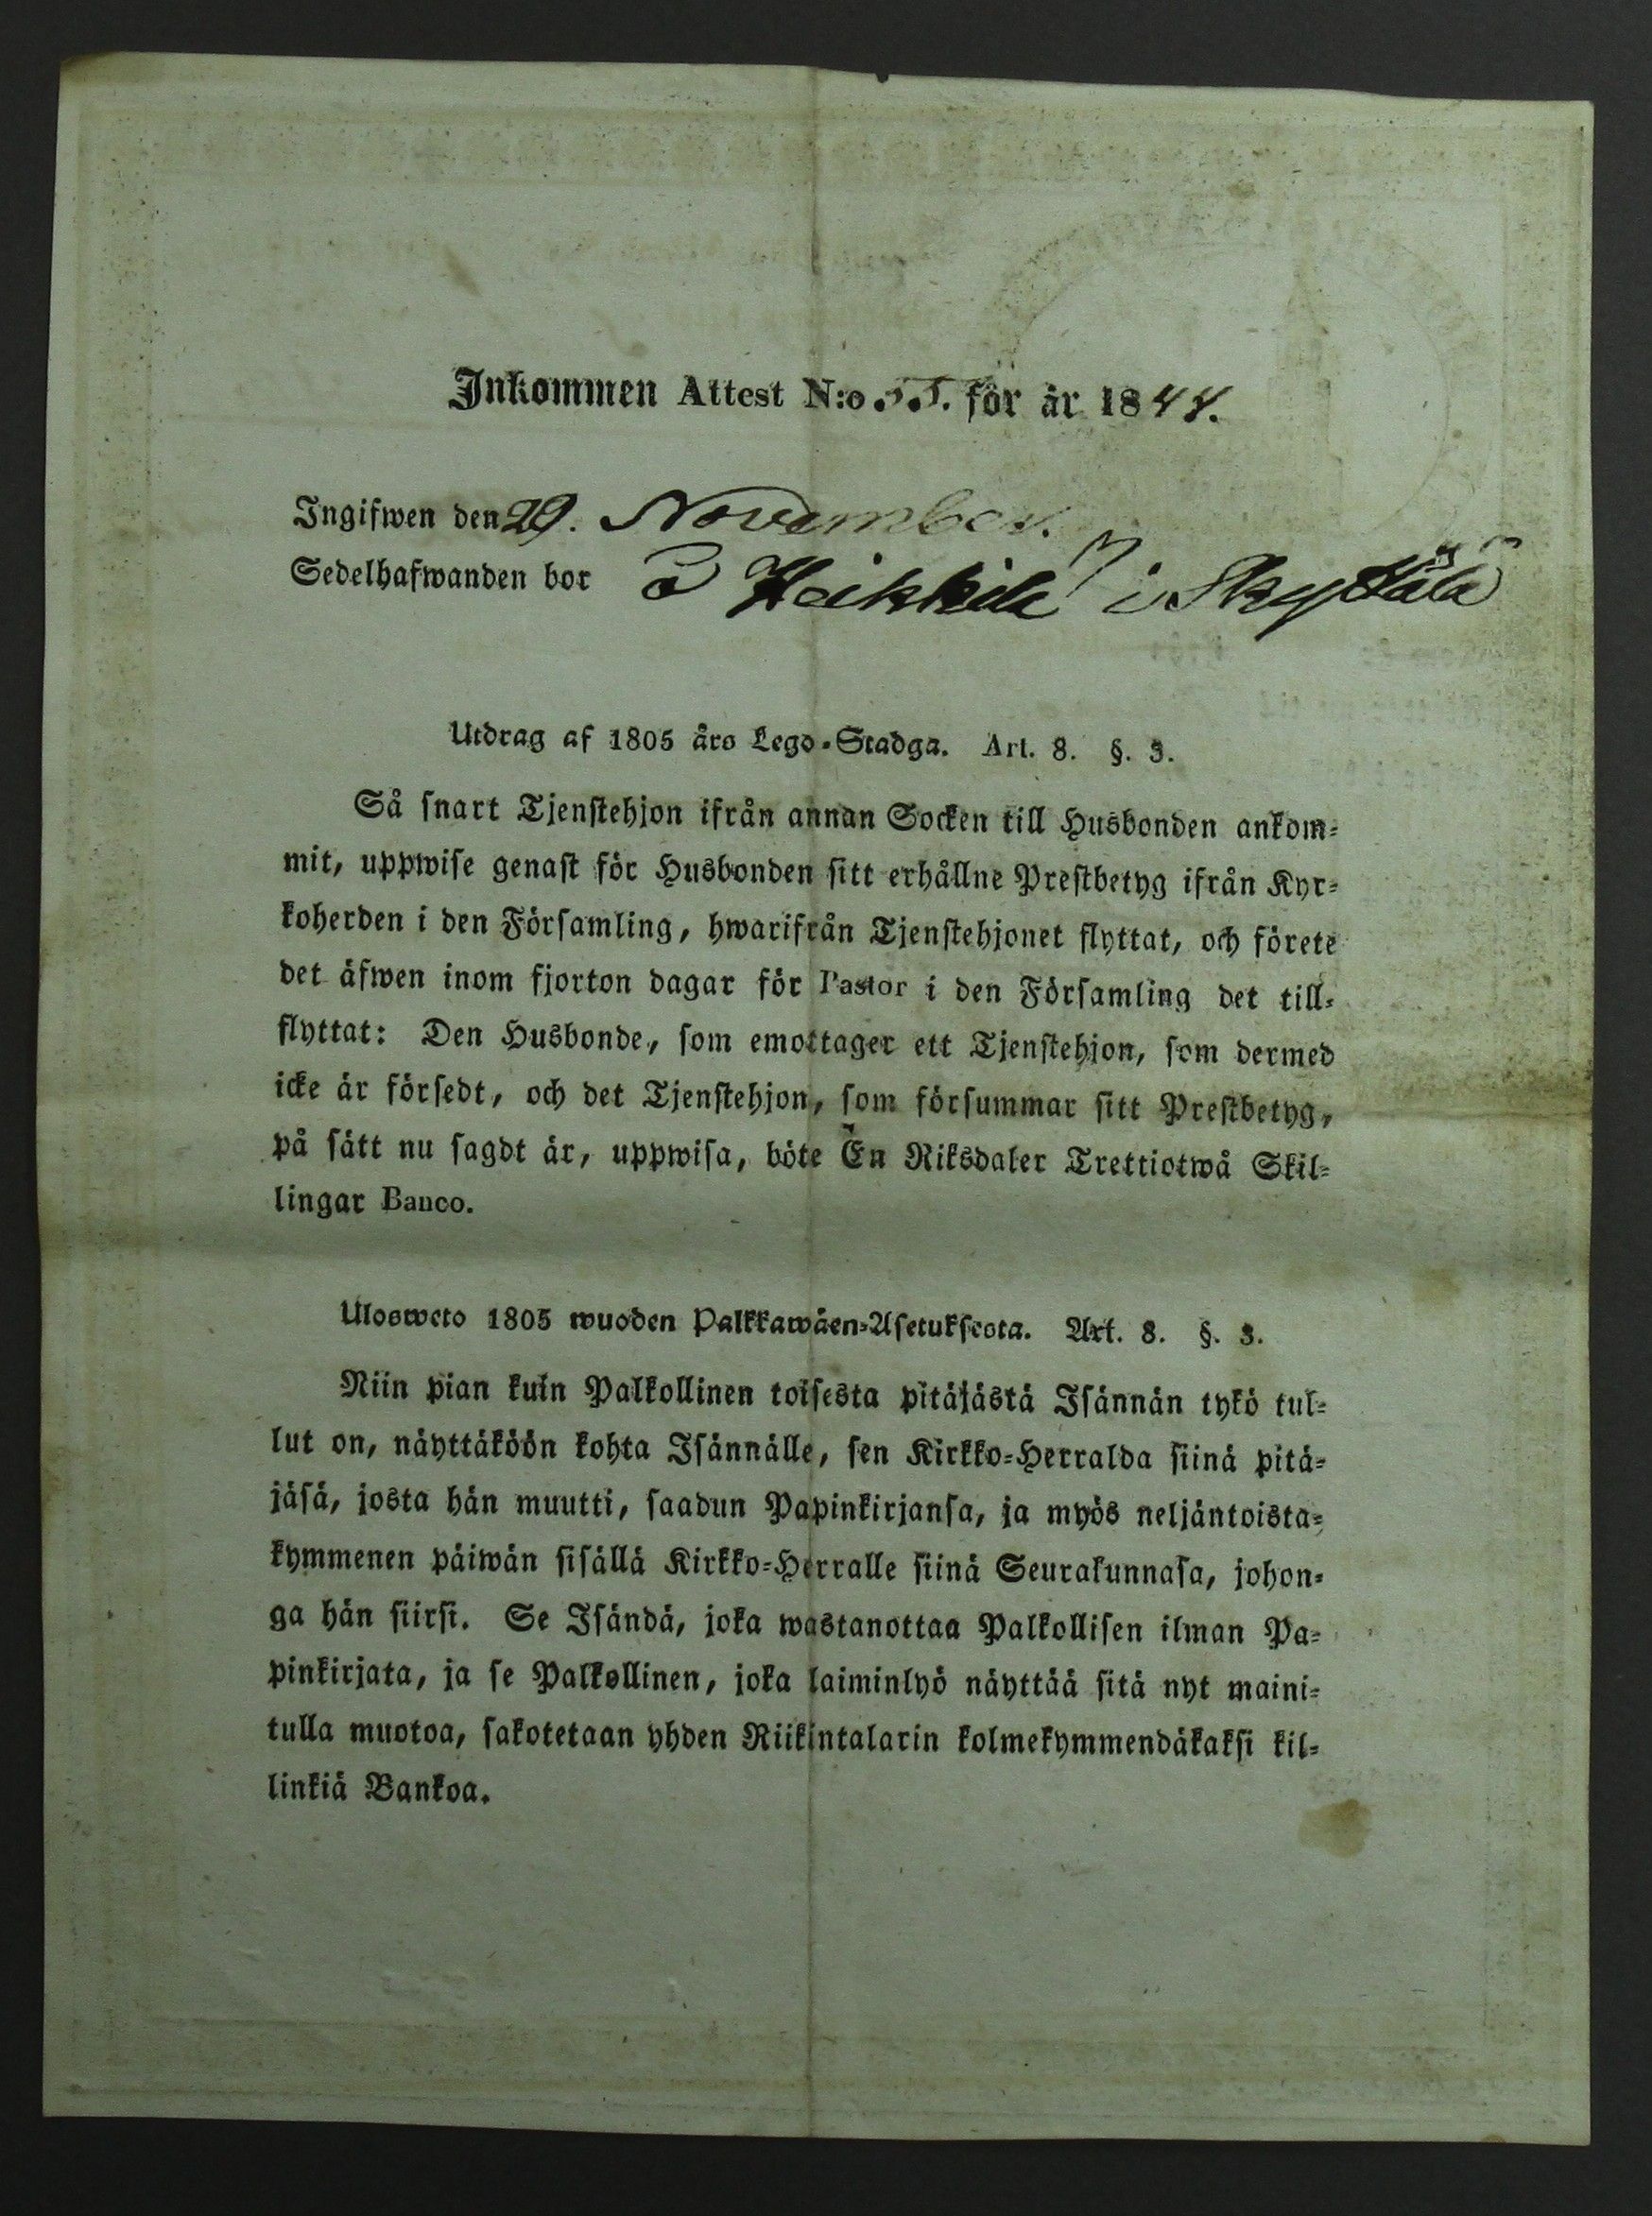 Inkommen Attest N:o 55. för år 1844.
Ingifwen den 29. November.
Sedelhafwanden bor å Heikkilä i Skyttälä
Utdrag af 1805 års Lego-Stadga. Art. 8. §. 3.
Så snart Tjenstehjon ifrån annan Socken till Husbonden ankom-
mit, uppwise genast för Husbonden sitt erhållne Prestbetyg ifrån Kyr-
koherden i den Församling, hwarifrån Tjenstehjonet flyttat, och förete
det äfwen inom fjorton dagar för Pastor i den Församling det till-
flyttat: Den Husbonde, som emottager ett Tjenstehjon, som dermed
icke är försedt, och det Tjenstehjon, som försummar sitt Prestbetyg,
på sätt nu sagdt är, uppwisa, böte En Riksdaler Trettiotwå Skil-
lingar Banco.
Ulosweto 1805 wuoden Palkkawäen-Asetuksesta. Art. 8. §. 3.
Niin pian kuin Palkollinen toisesta pitäjästä Isännän tykö tul-
lut on, näyttäköön kohta Isännälle, sen Kirkko-Herralda siinä pitä-
jäsä, josta hän muutti, saadun Papinkirjansa, ja myös neljäntoista-
kymmenen päiwän sisällä Kirkko-Herralle siinä Seurakunnasa, johon-
ga hän siirsi. Se Isändä, joka wastanottaa Palkollisen ilman Pa-
pinkirjata, ja se Palkollinen, joka laiminlyö näyttää sitä nyt maini-
tulla muotoa, sakotetaan yhden Riikintalarin kolmekymmendäkaksi kil-
linkiä Bankoa.